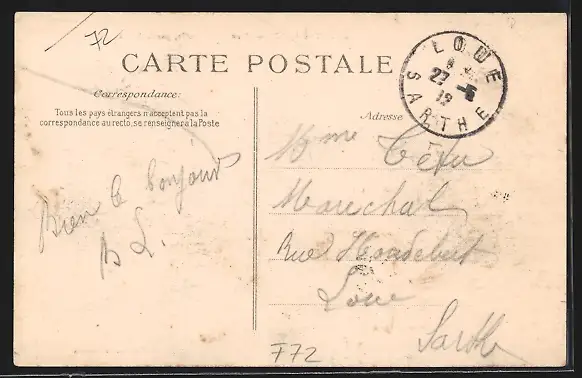 72
CARTE POSTALE
Correspondance:
Tous les pays étrangers n'acceptent pas la
correspondance au recto, se renseigner à la Poste
Adresse
LOUE
22 -5
12
SARTHE
Bien le bonjour
B L.
Mme
Maréchal
Rue
Loué
Sarthe
F72